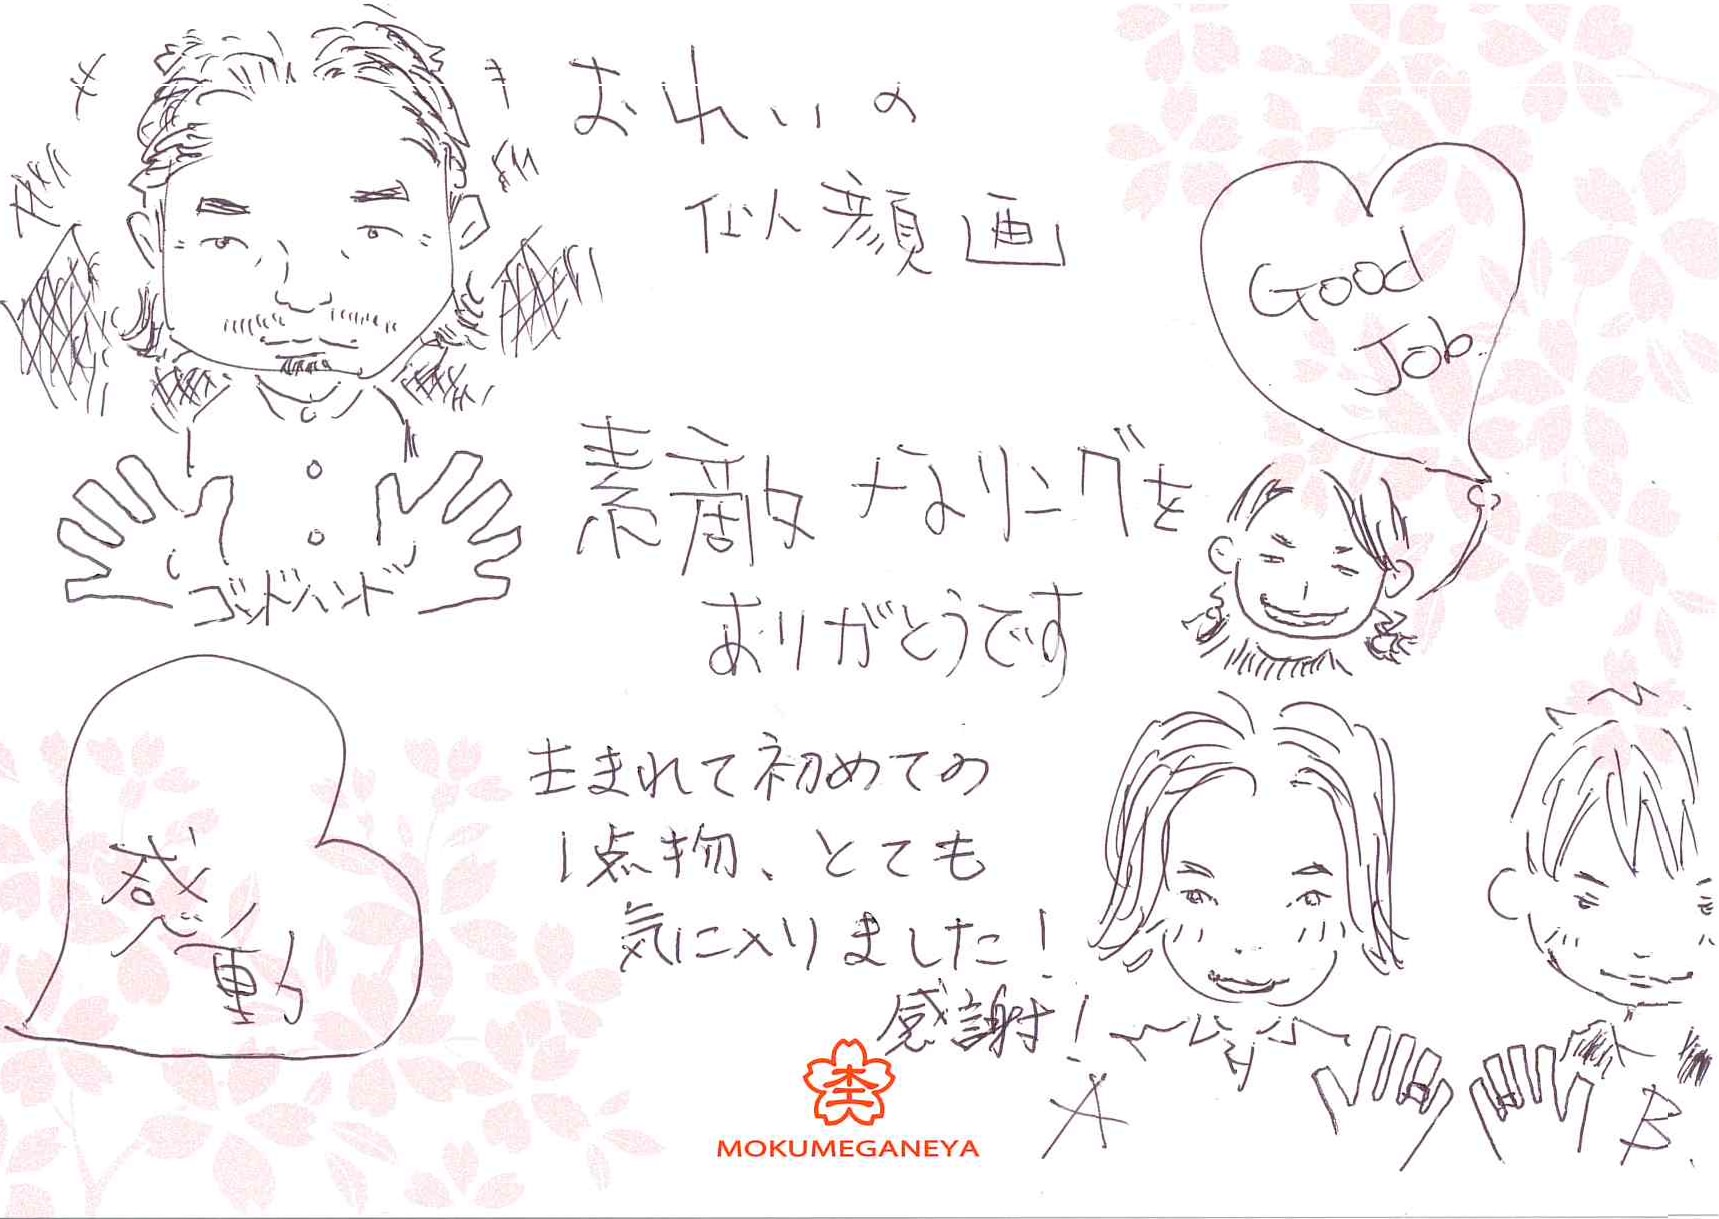 おれいの
似顔画
Good
Job
素敵なリングを
ゴッドハンド
ありがとうです
生まれて初めての
1点物、とても
気に入りました!
感謝!
感動
A
B
杢
MOKUMEGANEYA